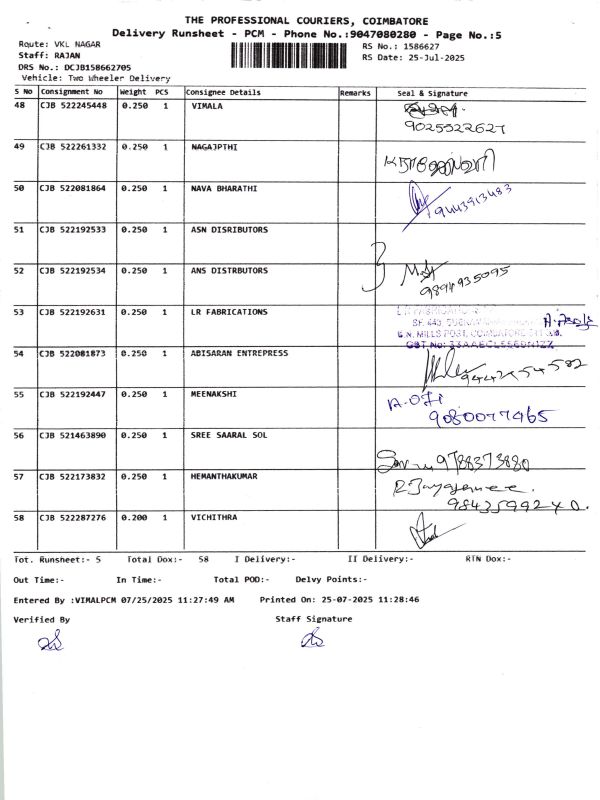 THE PROFESSIONAL COURIERS, COIMBATORE
Delivery Runsheet - PCM - Phone No.:9047080280 - Page No.:5
Route: VKL NAGAR
RS No.: 1586627
Staff: RAJAN
RS Date: 25-Jul-2025
DRS No.: DCJB158662705
Vehicle: Two Wheeler Delivery
S NO Consignment No Weight PCS Consignee Details Remarks Seal & Signature
48 CJB 522245448 0.250 1 VIMALA
9025522627
49 CJB 522261332 0.250 1 NAGAJPTHI
50 CJB 522081864 0.250 1 NAVA BHARATHI
9443913483
51 CJB 522192533 0.250 1 ASN DISRIBUTORS
52 CJB 522192534 0.250 1 ANS DISTRBUTORS
9894935095
53 CJB 522192631 0.250 1 LR FABRICATIONS
54 CJB 522081873 0.250 1 ABISARAN ENTREPRESS
9442454582
55 CJB 522192447 0.250 1 MEENAKSHI
9080077465
56 CJB 521463890 0.250 1 SREE SAARAL SOL
9788373880
57 CJB 522173832 0.250 1 HEMANTHAKUMAR
58 CJB 522287276 0.200 1 VICHITHRA
Tot. Runsheet:- 5 Total Dox:- 58 I Delivery:- II Delivery:- RTN Dox:-
Out Time:- In Time:- Total POD:- Delvy Points:-
Entered By :VIMALPCM 07/25/2025 11:27:49 AM Printed On: 25-07-2025 11:28:46
Verified By Staff Signature